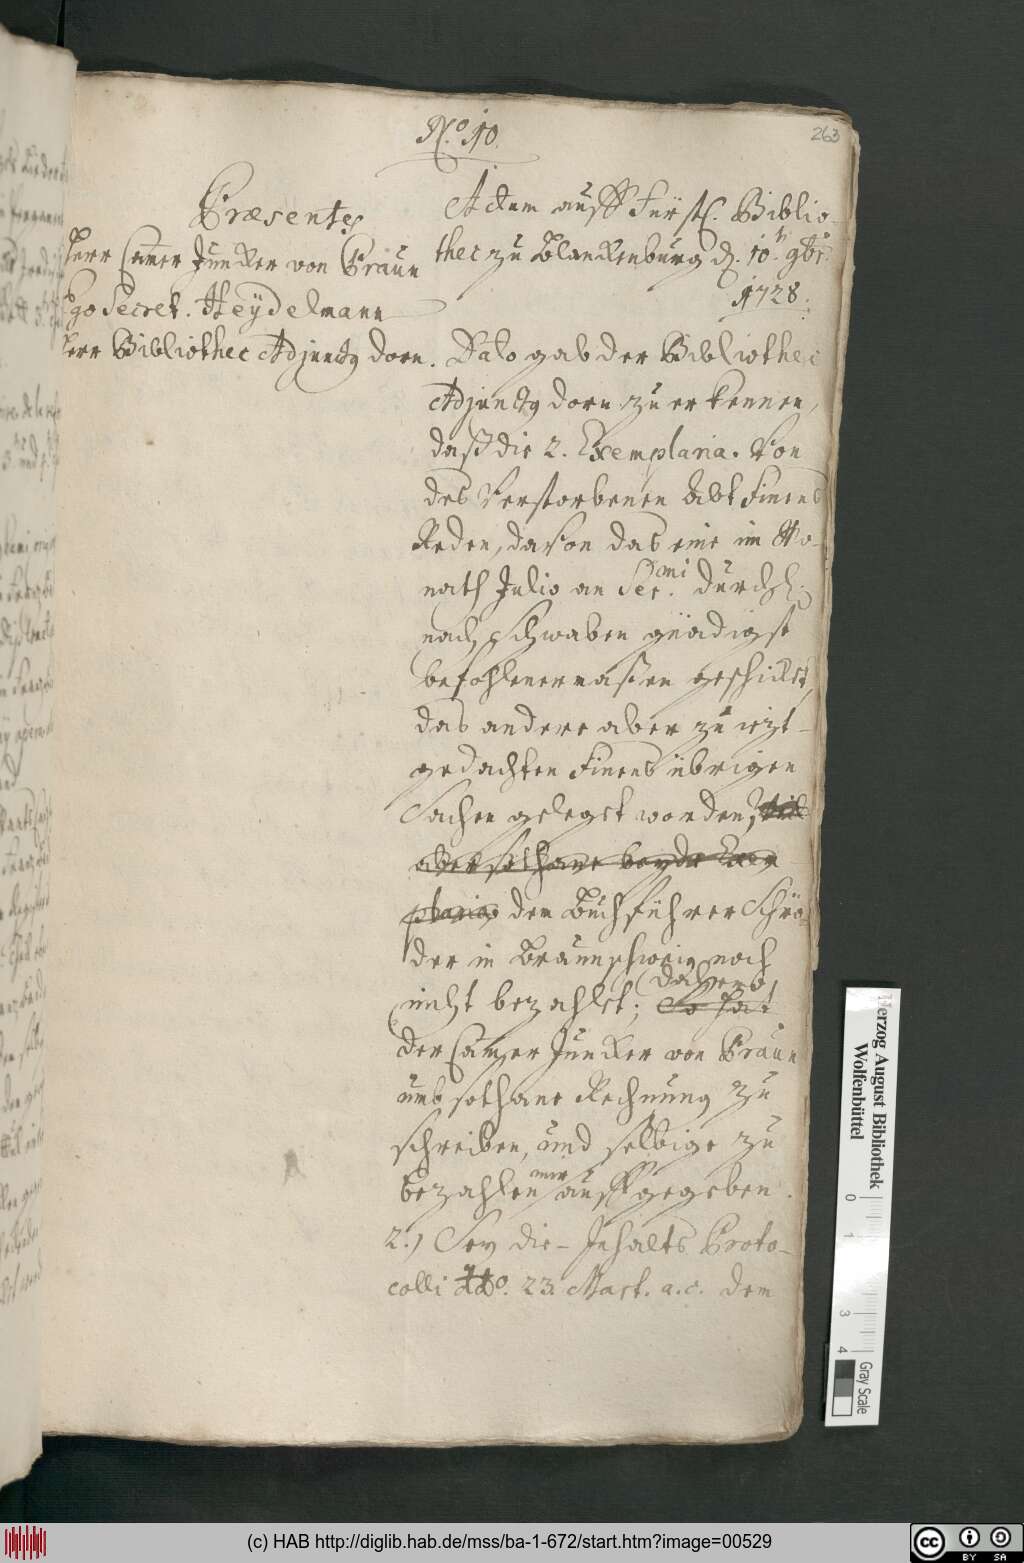 263
No. 10.
Præsentes
Herr Camer Juncker von Braun
Ego Secret. Heÿdelmann
Herr Bibliothec Adjunctg dorn.
Actum auff Fürstl. Biblio-
thec zu Blanckenburg d. 10. 9br.
1728.
Dato gab der Bibliothec
Adjunctg dorn zu erkennen,
daß die 2. Exemplaria. von
des verstorbenen Abt Finens
Reden, davon das eine im Mo-
nath Julio an Ser.mi durchl.
nach Schwaben gnädigst
befohlener maßen geschickt,
das andere aber zu iezt-
gedachten Finens übrigen
Sachen gelegt worden,
aber sothane beyde Exem
plaria, dem Buchführer Schrö-
der in Braunschweig noch
nicht bezahlet; So hat
daher
der Camer Juncker von Braun
umb sothane Rechnung zu
schreiben, und selbige zu
bezahlen mir auffgegeben.
2.) Sey die Inhalts Proto-
colli dto. 23. Mart. a.c. dem
Herzog August Bibliothek
Wolfenbüttel
0
1
3
4
Gray Scale
(c) HAB http://diglib.hab.de/mss/ba-1-672/start.htm?image=00529
cc BY SA